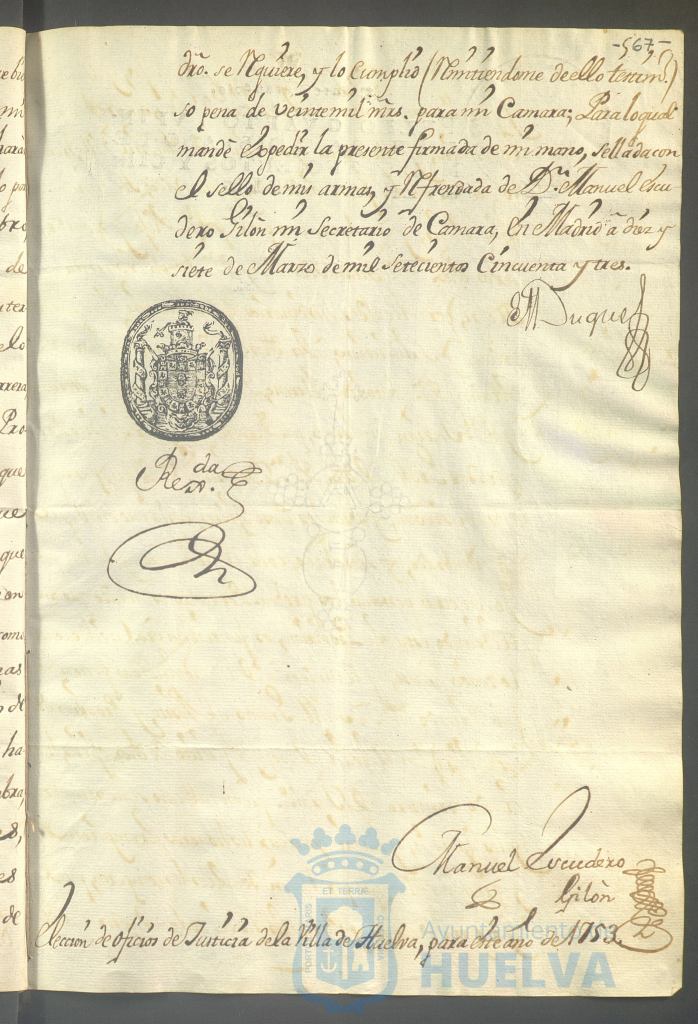 -567-
dro. se Rquiere, y lo Cumplid (Rmitiendome de ello testim.o)
so pena de veinte mil mrs. para mi Camara; Para lo qual
mandè expedir la presente firmada de mi mano, sellada con
el sello de mis armas, y Rfrendada de D.n Manuel escu-
dero Gilòn mi Secretario de Camara, En Madrid â diez y
siete de Marzo de mil setecientos Cinquenta y tres.
El Duque
da
Rex.
Manuel Escudero
Gilòn
Eleccion de oficios de Justicia de la Villa de Huelva, para este año de 1753.
ET TERRÆ
PORT
Ayuntamiento de
HUELVA